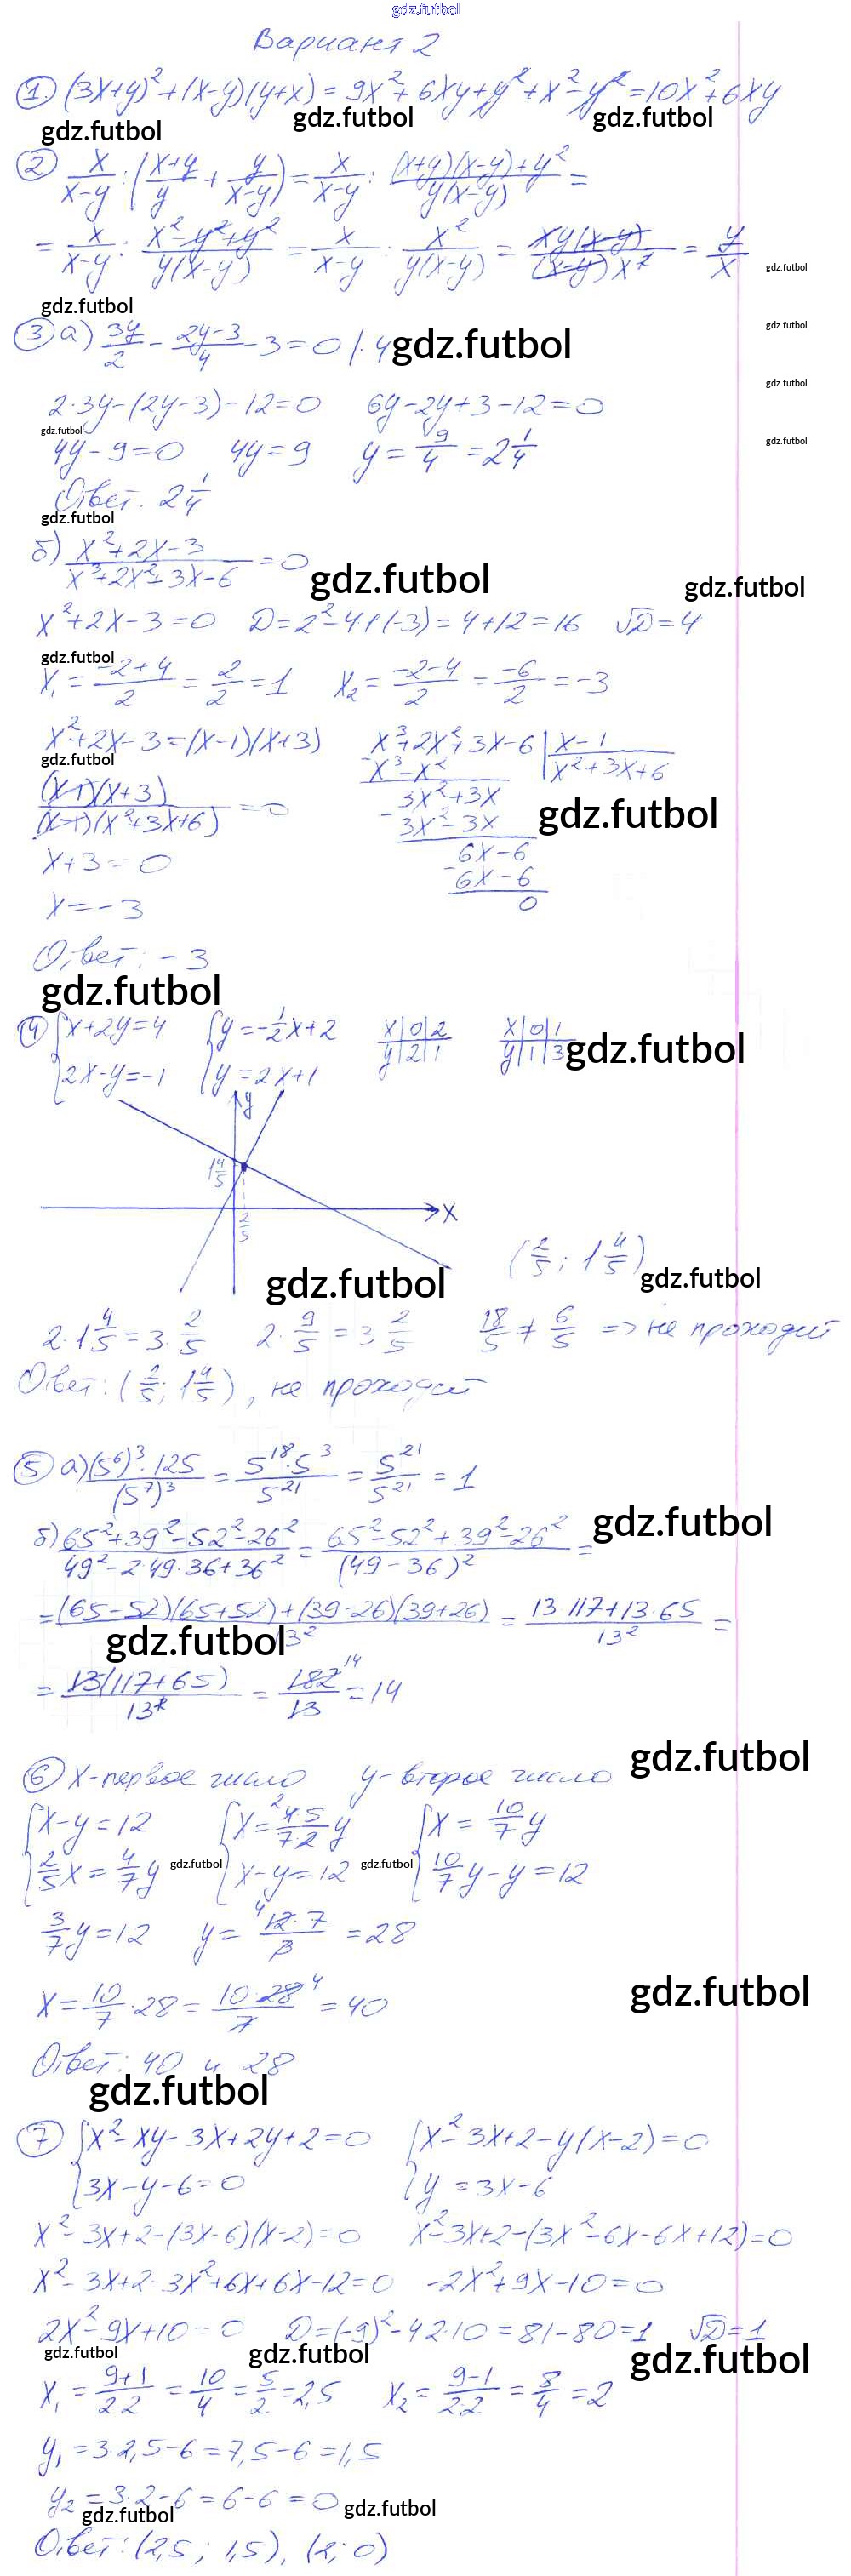 gdz.futbol
Вариант 2
① (3x+y)²+(x-y)(y+x) = 9x²+6xy+y²+x²-y² = 10x²+6xy
gdz.futbol gdz.futbol gdz.futbol
② x/(x-y) : ((x+y)/y + y/(x-y)) = x/(x-y) : ((x+y)(x-y)+y²)/(y(x-y)) =
= x/(x-y) : (x²-y²+y²)/(y(x-y)) = x/(x-y) : x²/(y(x-y)) = xy(x-y)/((x-y)x²) = y/x
gdz.futbol
gdz.futbol
③ а) 3y/2 - (2y-3)/4 - 3 = 0 |·4 gdz.futbol
gdz.futbol
gdz.futbol
2·3y-(2y-3)-12=0 6y-2y+3-12=0
gdz.futbol
gdz.futbol
4y-9=0 4y=9 y = 9/4 = 2 1/4
Ответ. 2 1/4
gdz.futbol
б) (x²+2x-3)/(x³+2x²+3x-6) = 0 gdz.futbol
gdz.futbol
x²+2x-3=0 D=2²-4·1·(-3)=4+12=16 √D=4
gdz.futbol
x₁ = (-2+4)/2 = 2/2 = 1 x₂ = (-2-4)/2 = -6/2 = -3
x²+2x-3=(x-1)(x+3) x³+2x²+3x-6 | x-1
gdz.futbol
- x³-x² x²+3x+6
(x-1)(x+3)/((x-1)(x²+3x+6)) = 0 3x²+3x
- 3x²-3x gdz.futbol
x+3=0 6x-6
- 6x-6
x=-3 0
Ответ: -3
gdz.futbol
④ {x+2y=4 {y=-1/2x+2 x|0|2 x|0|1
2x-y=-1 y=2x+1 y|2|1 y|1|3 gdz.futbol
y
1 4/5
x
2/5
(2/5; 1 4/5)
gdz.futbol gdz.futbol
2·1 4/5 = 3·2/5 2·9/5 = 3·2/5 18/5 ≠ 6/5 => не проходит
Ответ: (2/5; 1 4/5), не проходит
⑤ а) (5⁶)³·125/(5⁷)³ = 5¹⁸·5³/5²¹ = 5²¹/5²¹ = 1
б) (65²+39²-52²-26²)/(49²-2·49·36+36²) = (65²-52²+39²-26²)/(49-36)² = gdz.futbol
= ((65-52)(65+52)+(39-26)(39+26))/13² = (13·117+13·65)/13² =
gdz.futbol
= 13(117+65)/13² = 182/13 = 14
⑥ x-первое число y-второе число gdz.futbol
{x-y=12 {x = 4·5/(7·2) y {x = 10/7 y
2/5 x = 4/7 y gdz.futbol x-y=12 gdz.futbol 10/7 y - y = 12
3/7 y = 12 y = 12·7/3 = 28
x = 10/7·28 = 10·28/7 = 40 gdz.futbol
Ответ: 40 и 28
gdz.futbol
⑦ {x²-xy-3x+2y+2=0 {x²-3x+2-y(x-2)=0
3x-y-6=0 y=3x-6
x²-3x+2-(3x-6)(x-2)=0 x²-3x+2-(3x²-6x-6x+12)=0
x²-3x+2-3x²+6x+6x-12=0 -2x²+9x-10=0
2x²-9x+10=0 D=(-9)²-4·2·10=81-80=1 √D=1
gdz.futbol gdz.futbol gdz.futbol
x₁ = (9+1)/(2·2) = 10/4 = 5/2 = 2,5 x₂ = (9-1)/(2·2) = 8/4 = 2
y₁ = 3·2,5-6 = 7,5-6 = 1,5
y₂ = 3·2-6 = 6-6 = 0 gdz.futbol
gdz.futbol
Ответ: (2,5; 1,5), (2; 0)